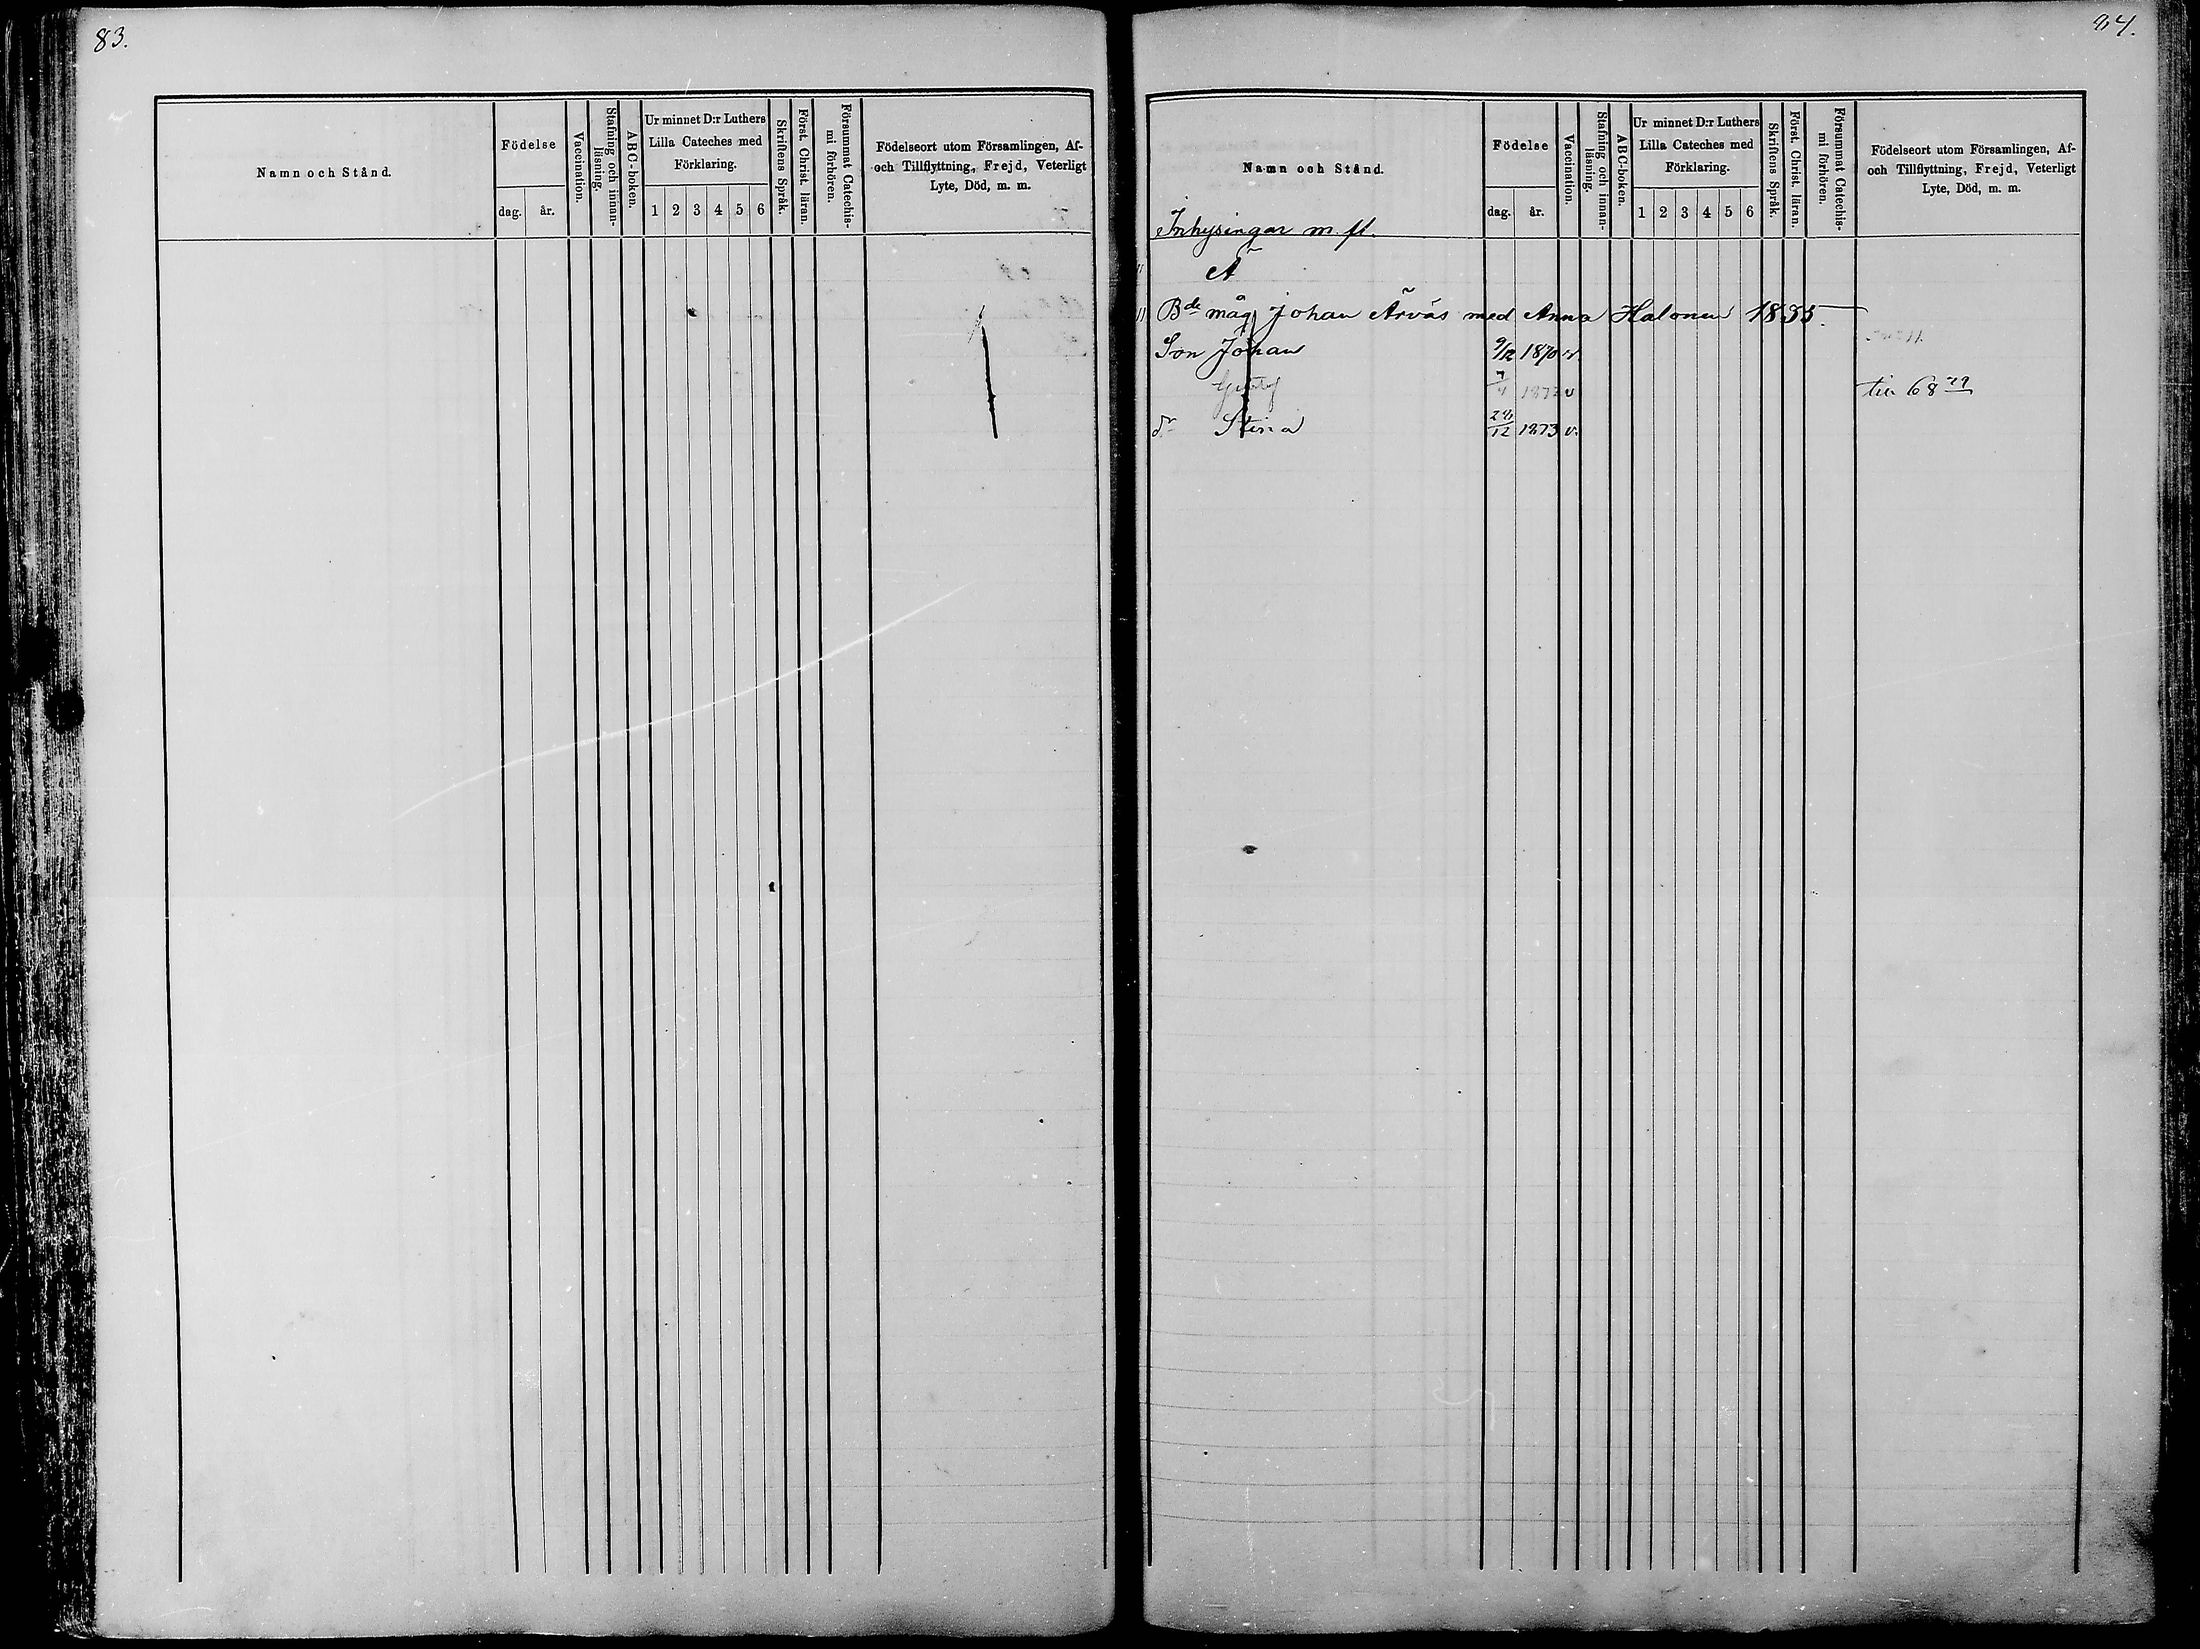 83.
Namn och Stånd.
Födelse
dag. år.
Vaccination.
Stafning och innan-
läsning.
ABC-boken.
Ur minnet D:r Luthers
Lilla Cateches med
Förklaring.
1 2 3 4 5 6
Skriftens Språk.
Först. Christ. läran.
Försummat Catechis-
mi förhören.
Födelseort utom Församlingen, Af-
och Tillflyttning, Frejd, Veterligt
Lyte, Död, m. m.
84.
Namn och Stånd.
Födelse
dag. år.
Vaccination.
Stafning och innan-
läsning.
ABC-boken.
Ur minnet D:r Luthers
Lilla Cateches med
Förklaring.
1 2 3 4 5 6
Skriftens Språk.
Först. Christ. läran.
Försummat Catechis-
mi förhören.
Födelseort utom Församlingen, Af-
och Tillflyttning, Frejd, Veterligt
Lyte, Död, m. m.
Inhysingar m. fl.
A
Bde måg Johan Arvas med Anna Halonen 1835
Son Johan 9/12 1870 v.
Gustaf 7/4 1872 v
dr Stina 28/12 1873 v.